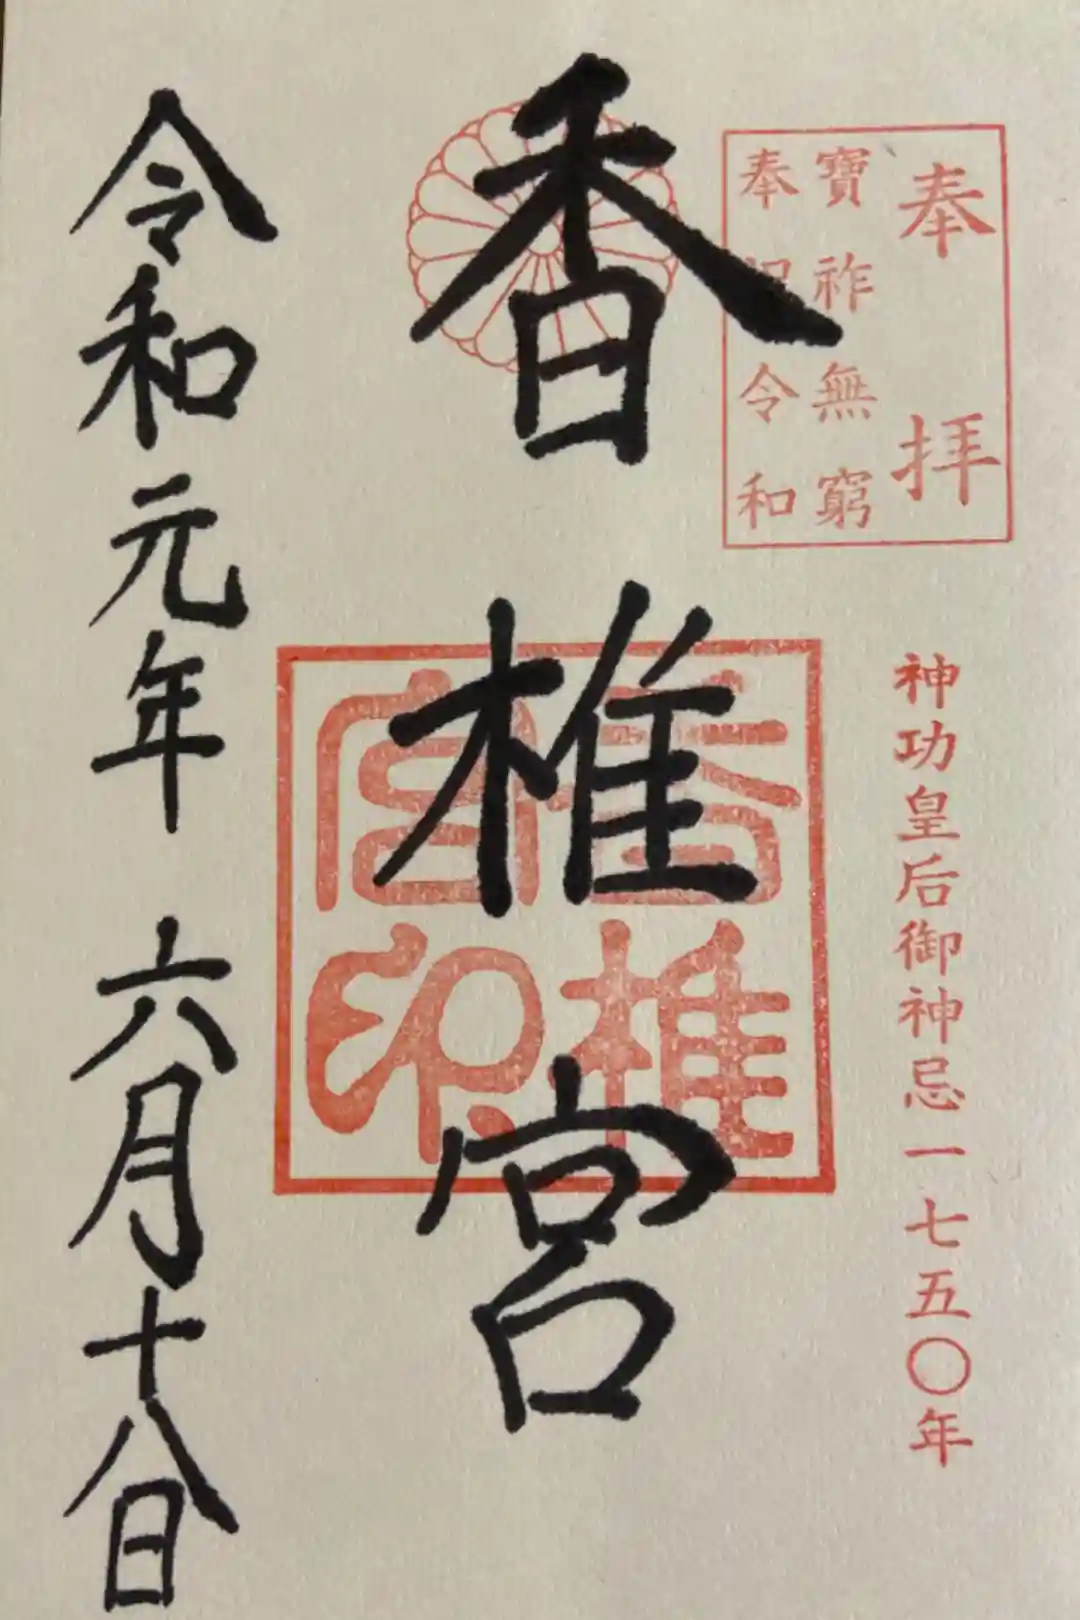 奉拝
寶祚無窮
奉祝令和
神功皇后御神忌一七五〇年
香椎宮
香椎宮印
令和元年六月十八日